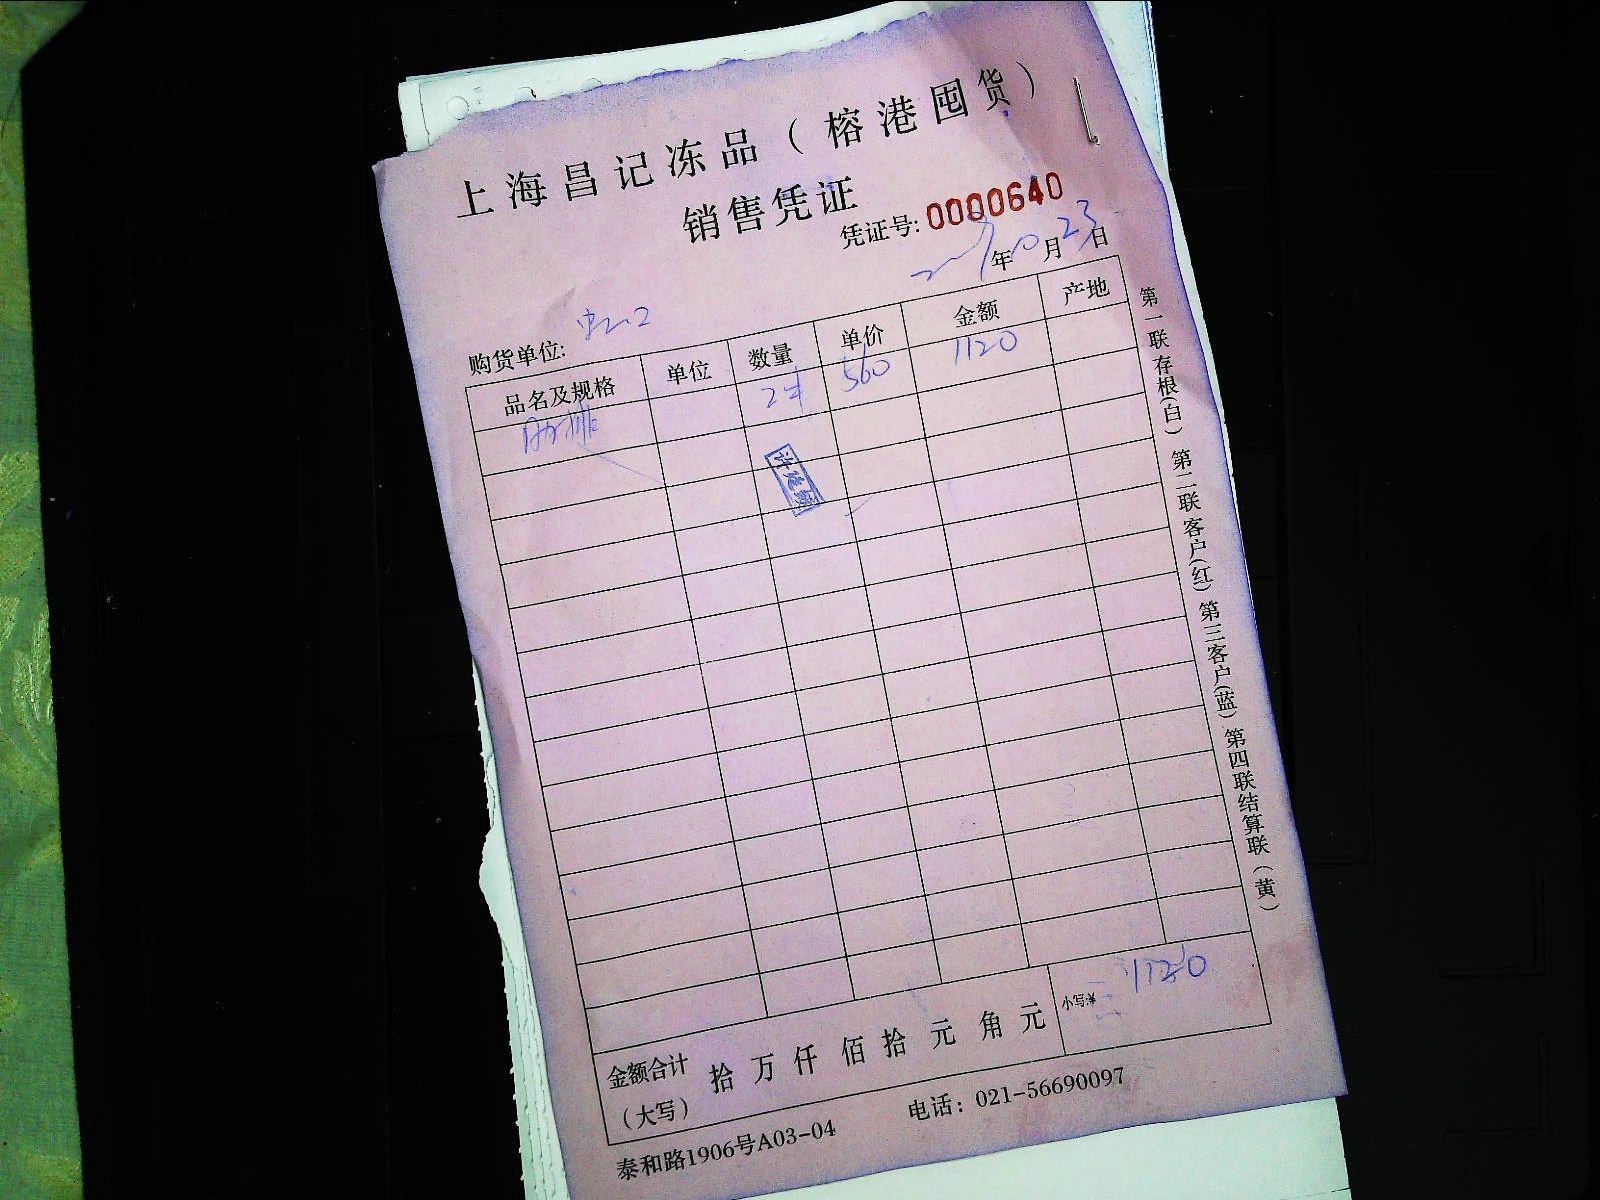 上海昌记冻品（榕港囤货）
销售凭证
凭证号: 0000640
年10月23日
购货单位:
品名及规格 单位 数量 单价 金额 产地
肋排 2件 560 1120
金额合计（大写） 拾 万 仟 佰 拾 元 角 元 小写:¥ 1120
泰和路1906号A03-04 电话：021-56690097
第一联存根(白) 第二联客户(红) 第三客户(蓝) 第四联结算联（黄）